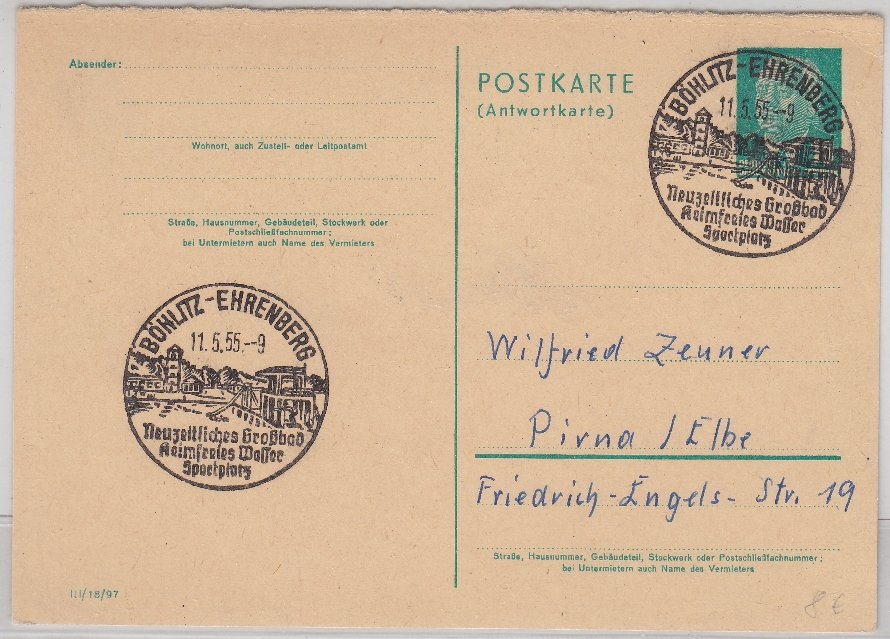 Absender:
Wohnort, auch Zustell- oder Leitpostamt
Straße, Hausnummer, Gebäudeteil, Stockwerk oder
Postschließfachnummer;
bei Untermietern auch Name des Vermieters
BÖHLITZ-EHRENBERG
11.5.55.--9
Neuzeitliches Großbad
Keimfreies Wasser
Sportplatz
III/18/97
POSTKARTE
(Antwortkarte)
BÖHLITZ-EHRENBERG
11.5.55.--9
Neuzeitliches Großbad
Keimfreies Wasser
Sportplatz
Wilfried Zenner
Pirna / Elbe
Friedrich-Engels-Str. 19
Straße, Hausnummer, Gebäudeteil, Stockwerk oder Postschließfachnummer;
bei Untermietern auch Name des Vermieters
8€